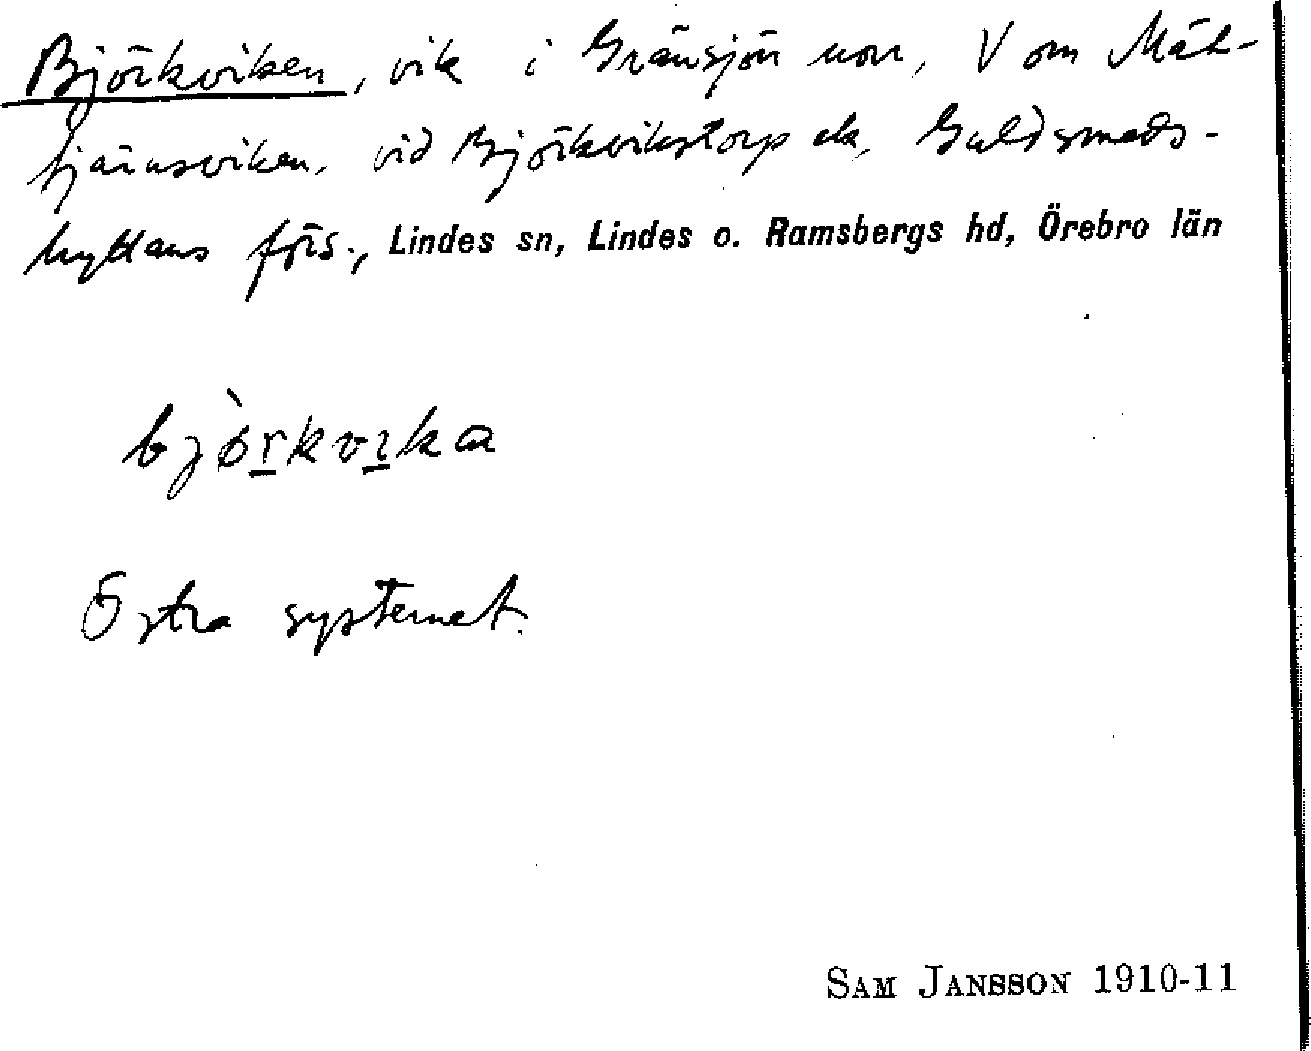 Björkviken, vik i Gränsjön uon, V om Mäl-
tjärnsviken, vid Björkvikstorp ek, Guldsmeds-
hyttans förs., Lindes sn, Lindes o. Ramsbergs hd, Örebro län
bjòrkvıka
Östra systemet.
SAM JANSSON 1910-11